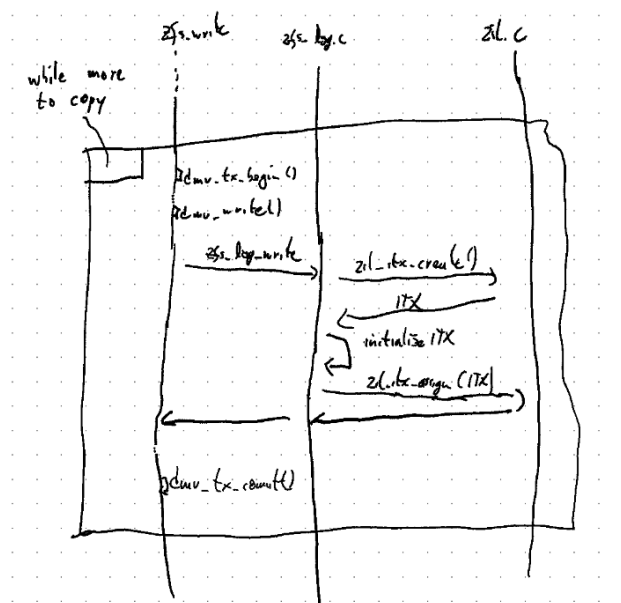 zfs_write
zfs_log.c
zil.c
while more
to copy
dmu_tx_begin()
dmu_write()
zfs_log_write
zil_itx_create()
ITX
initialize ITX
zil_itx_assign(ITX)
dmu_tx_commit()